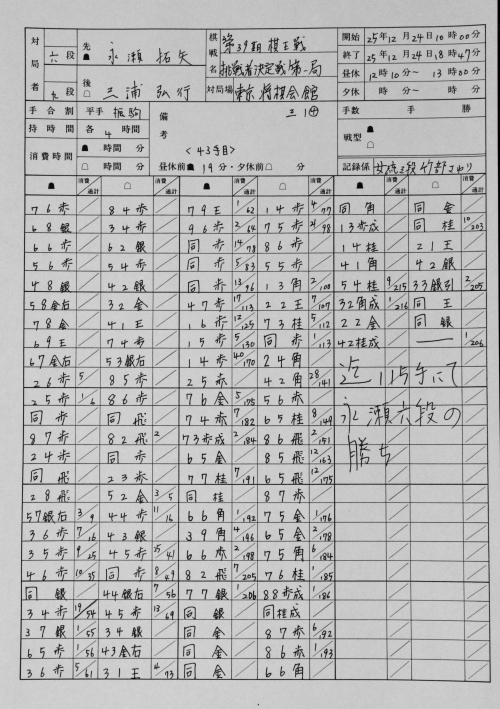 対局者 六段 先 ☗ 永瀬 拓矢 棋戦名 第39期 棋王戦 開始 25年12月24日10時00分
終了 25年12月24日18時47分
九段 後 ☖ 三浦 弘行 挑戦者決定戦第一局 昼休 12時10分〜13時00分
対局場 東京将棋会館 夕休 時 分〜 時 分
手合割 平手 振駒 備考 三 1 手数 手 勝
持時間 各4時間 戦型 ☗ ☖
消費時間 ☗ 時間 分 ☖ 時間 分 <43手目>
昼休前 ☗ 19分・夕休前 ☖ 分 記録係 女流三段 竹部さゆり
☗ 消費通計 ☖ 消費通計 ☗ 消費通計 ☖ 消費通計 ☗ 消費通計 ☖ 消費通計
76歩 84歩 79王 1/62 14歩 4/77 同角 同金
68銀 34歩 96歩 2/64 75歩 21/98 13歩成 同桂 10/203
66歩 62銀 同歩 14/78 86歩 14桂 21王
56歩 54歩 同歩 5/83 55歩 41角 42銀
48銀 42銀 同歩 13/96 13角 2/100 54桂 9/215 33銀引 2/205
58金右 32金 47歩 17/113 22王 7/107 32角成 1/216 同王
78金 41王 16歩 12/125 73桂 5/112 22金 同銀
69王 74歩 15歩 5/130 同歩 1/113 42桂成 ― 1/206
67金右 53銀右 14歩 40/170 24角
26歩 5 85歩 25歩 42角 28/141
25歩 1/6 86歩 76金 5/175 56歩
同歩 同飛 74歩 7/182 65桂 8/149
87歩 82飛 2 73歩成 2/184 86飛 2/151
24歩 同歩 65金 85飛 12/163
同飛 23歩 77桂 7/191 65飛 12/175
28飛 52金 3/5 同桂 87歩
57銀右 3/9 44歩 11/16 66角 1/192 75金 1/176
36歩 7/16 43銀 39角 4/196 65金 2/178
35歩 9/25 45歩 25/41 66歩 2/198 75角 6/184
46歩 10/35 同歩 8/49 82飛 7/205 76桂 1/185
同銀 44銀右 7/56 77銀 1/206 88歩成 1/186
34歩 19/54 45歩 13/69 同銀 同桂成
37銀 1/55 34銀 同金 87歩 6/192
65歩 1/56 43金右 同金 86歩 1/193
36歩 5/61 31王 4/73 同金 66角
迄115手にて
永瀬六段の
勝ち